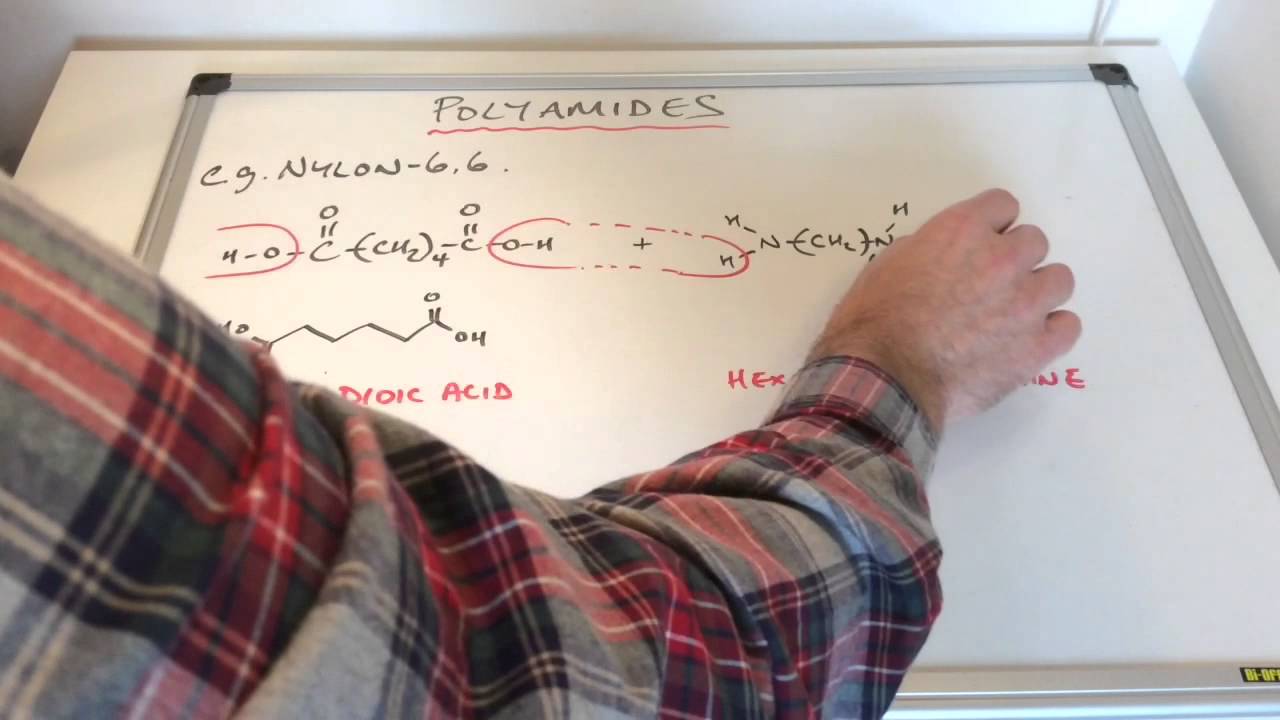 POLYAMIDES
e.g. NYLON-6,6.
O O
H-O-C-(CH2)4-C-O-H + H H N-(CH2) N H
O
OH
DIOIC ACID
HEX INE
Bi-OFF